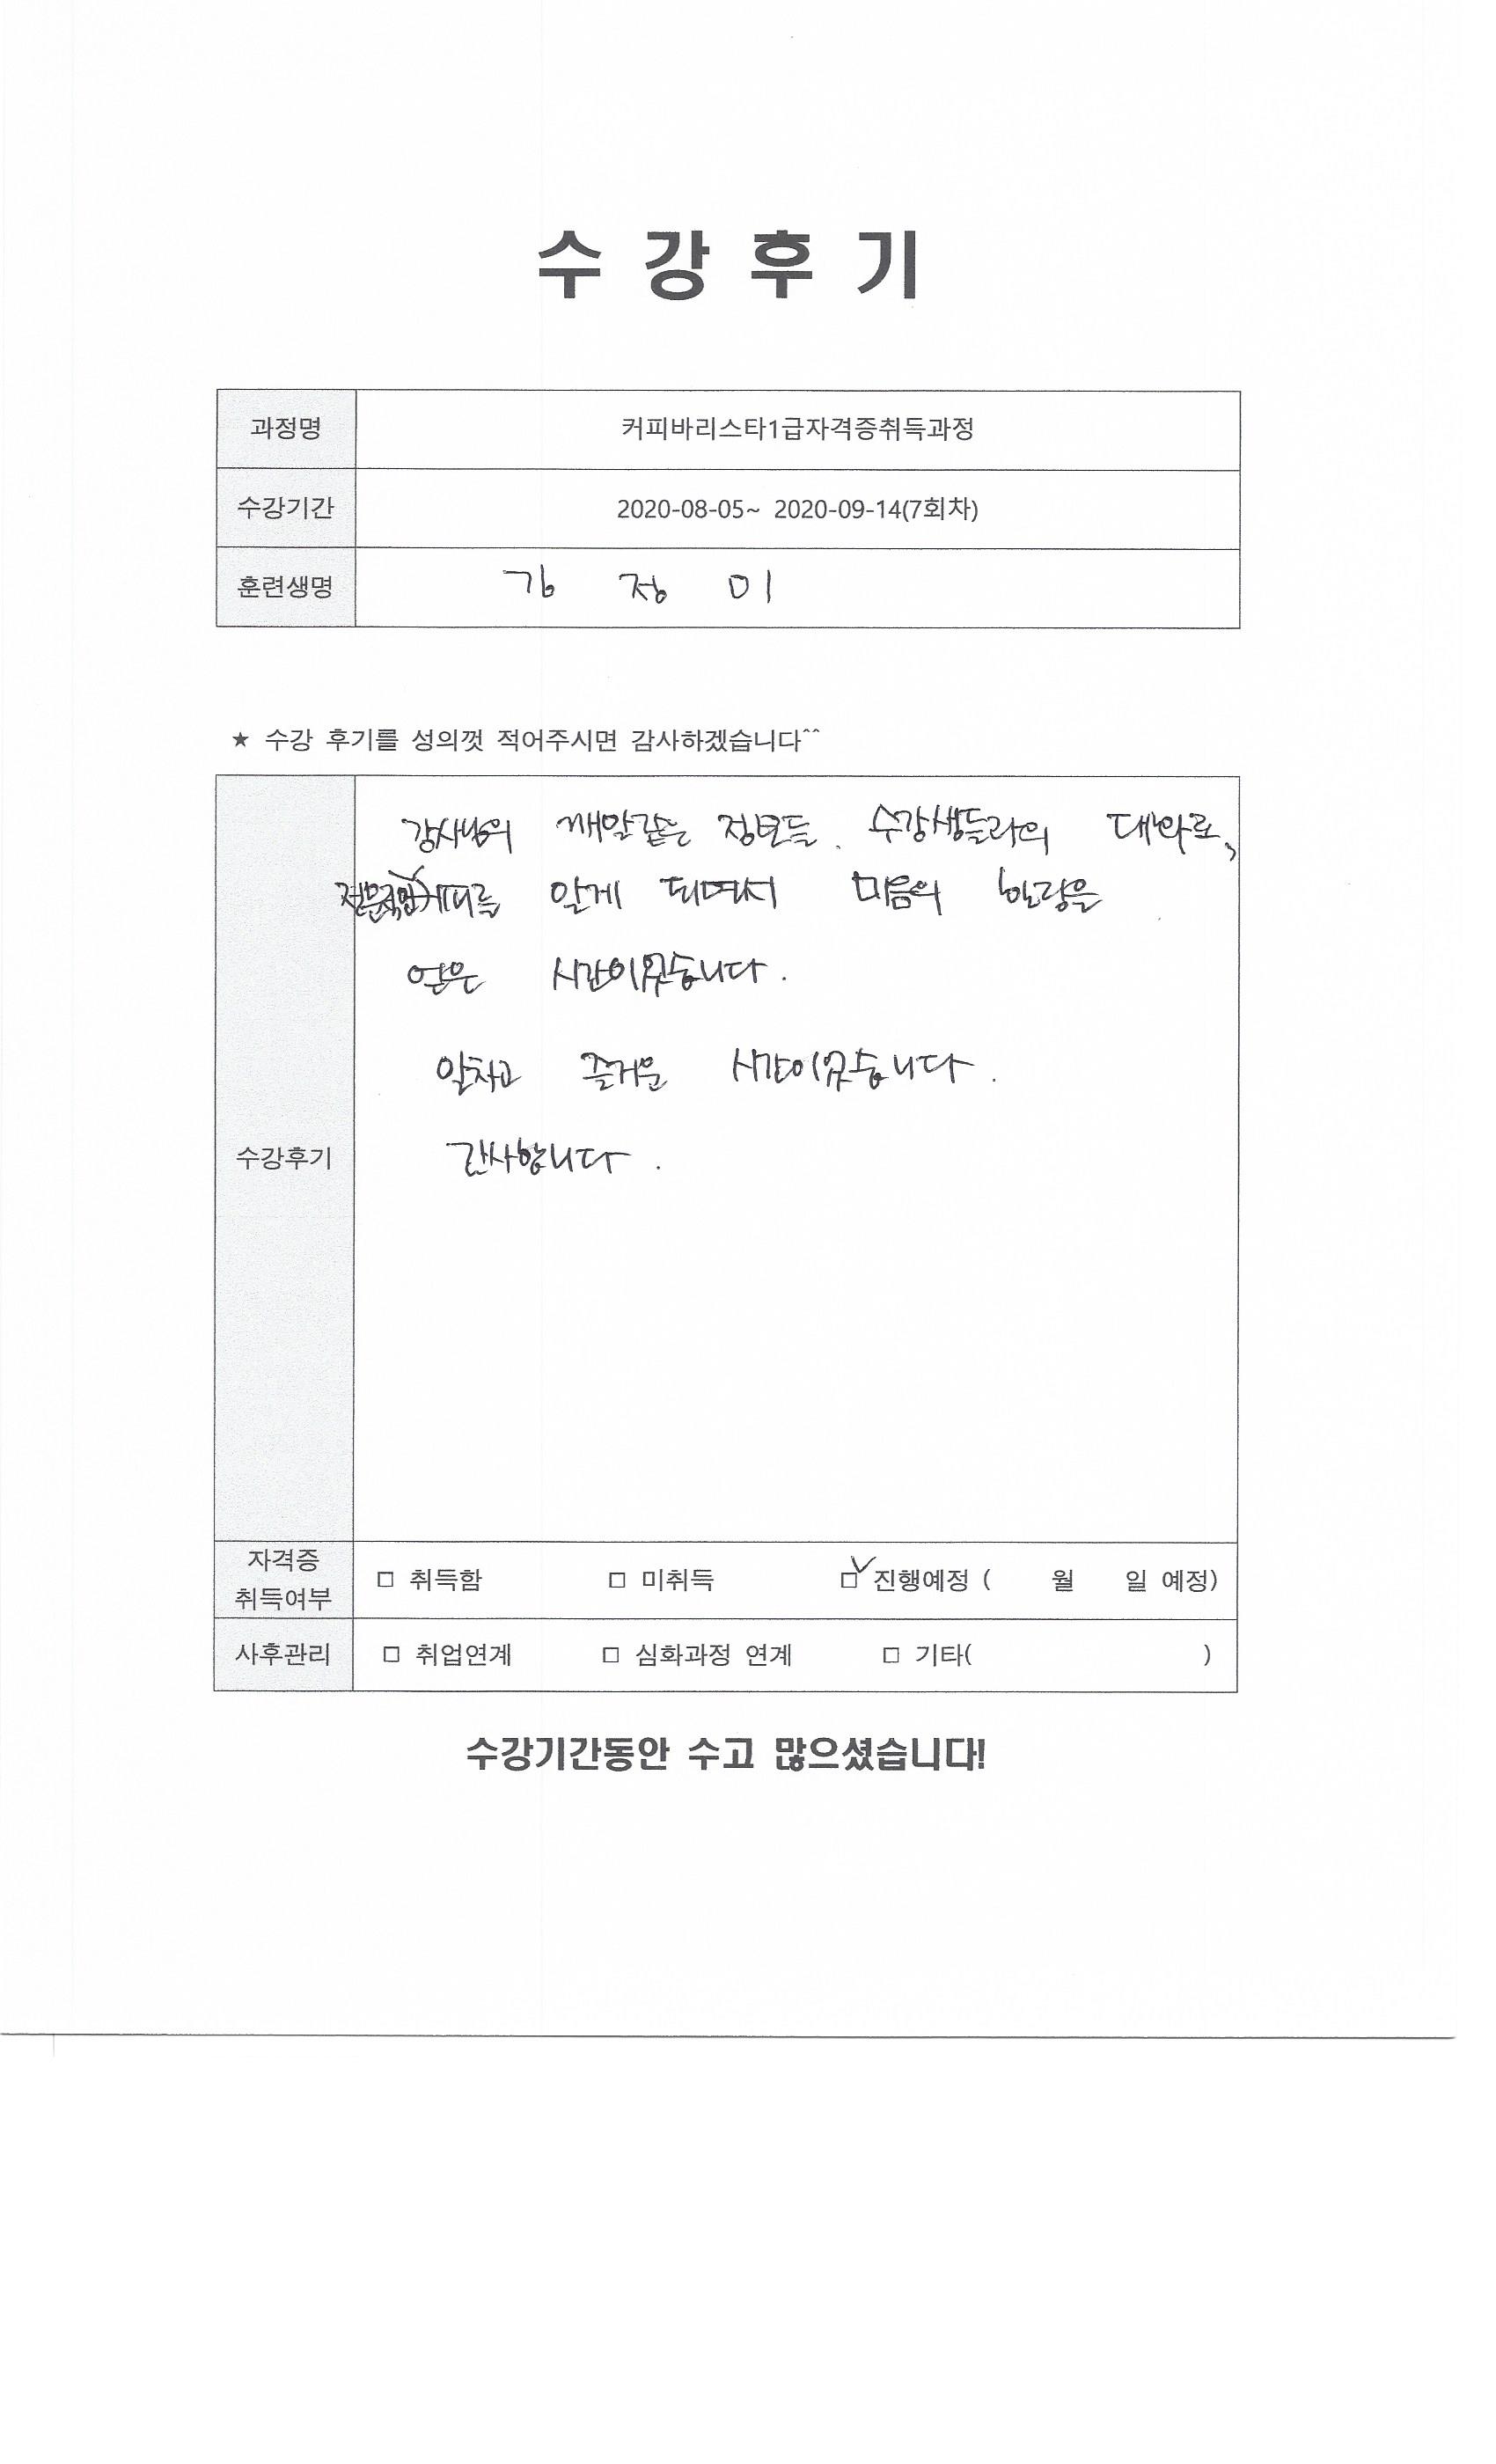 수 강 후 기
과정명 커피바리스타1급자격증취득과정
수강기간 2020-08-05~ 2020-09-14(7회차)
훈련생명 김 정 미
★ 수강 후기를 성의껏 적어주시면 감사하겠습니다^^
강사님의 깨알같은 정보들. 수강생들과의 대화로,
전문적인 커피를 알게 되면서 마음의 힐링을
얻은 시간이었습니다.
알차고 즐거운 시간이었습니다.
수강후기 감사합니다.
자격증
취득여부 □ 취득함 □ 미취득 ☑ 진행예정 ( 월 일 예정)
사후관리 □ 취업연계 □ 심화과정 연계 □ 기타( )
수강기간동안 수고 많으셨습니다!